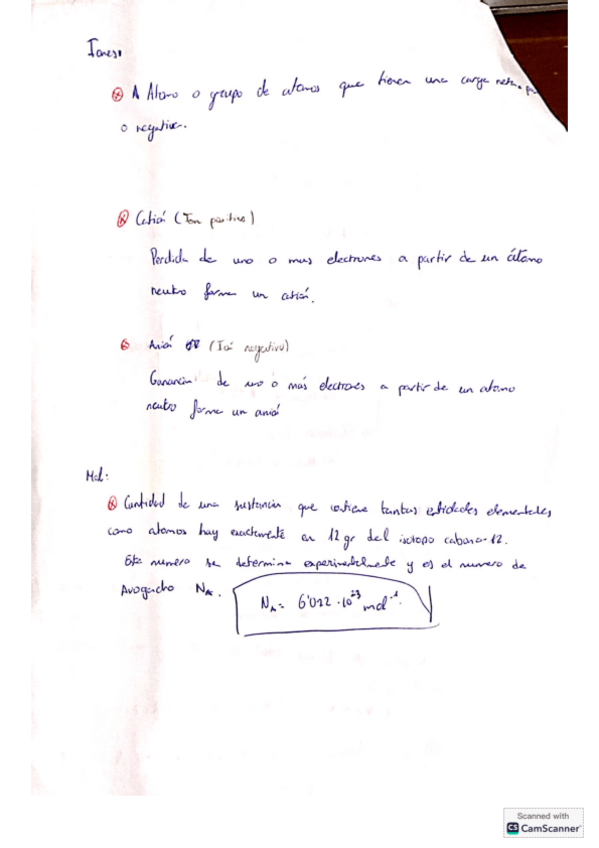 Iones:
A Atomo o grupo de atomos que tienen una carga neta, p
o negativa.
Catión (Ion positivo)
Perdida de uno o mas electrones a partir de un átomo
neutro forma un catión.
Anión (Ión negativo)
Ganancia de uno o más electrones a partir de un atomo
neutro forma un anión
Mol:
Cantidad de una sustancia que contiene tantas entidades elementales
como atomos hay exactamente en 12 gr del isotopo cabono-12.
Este numero se determina experimentalmente y es el numero de
Avogacho NA.
NA = 6'022 · 10²³ mol⁻¹.
Scanned with
CS CamScanner